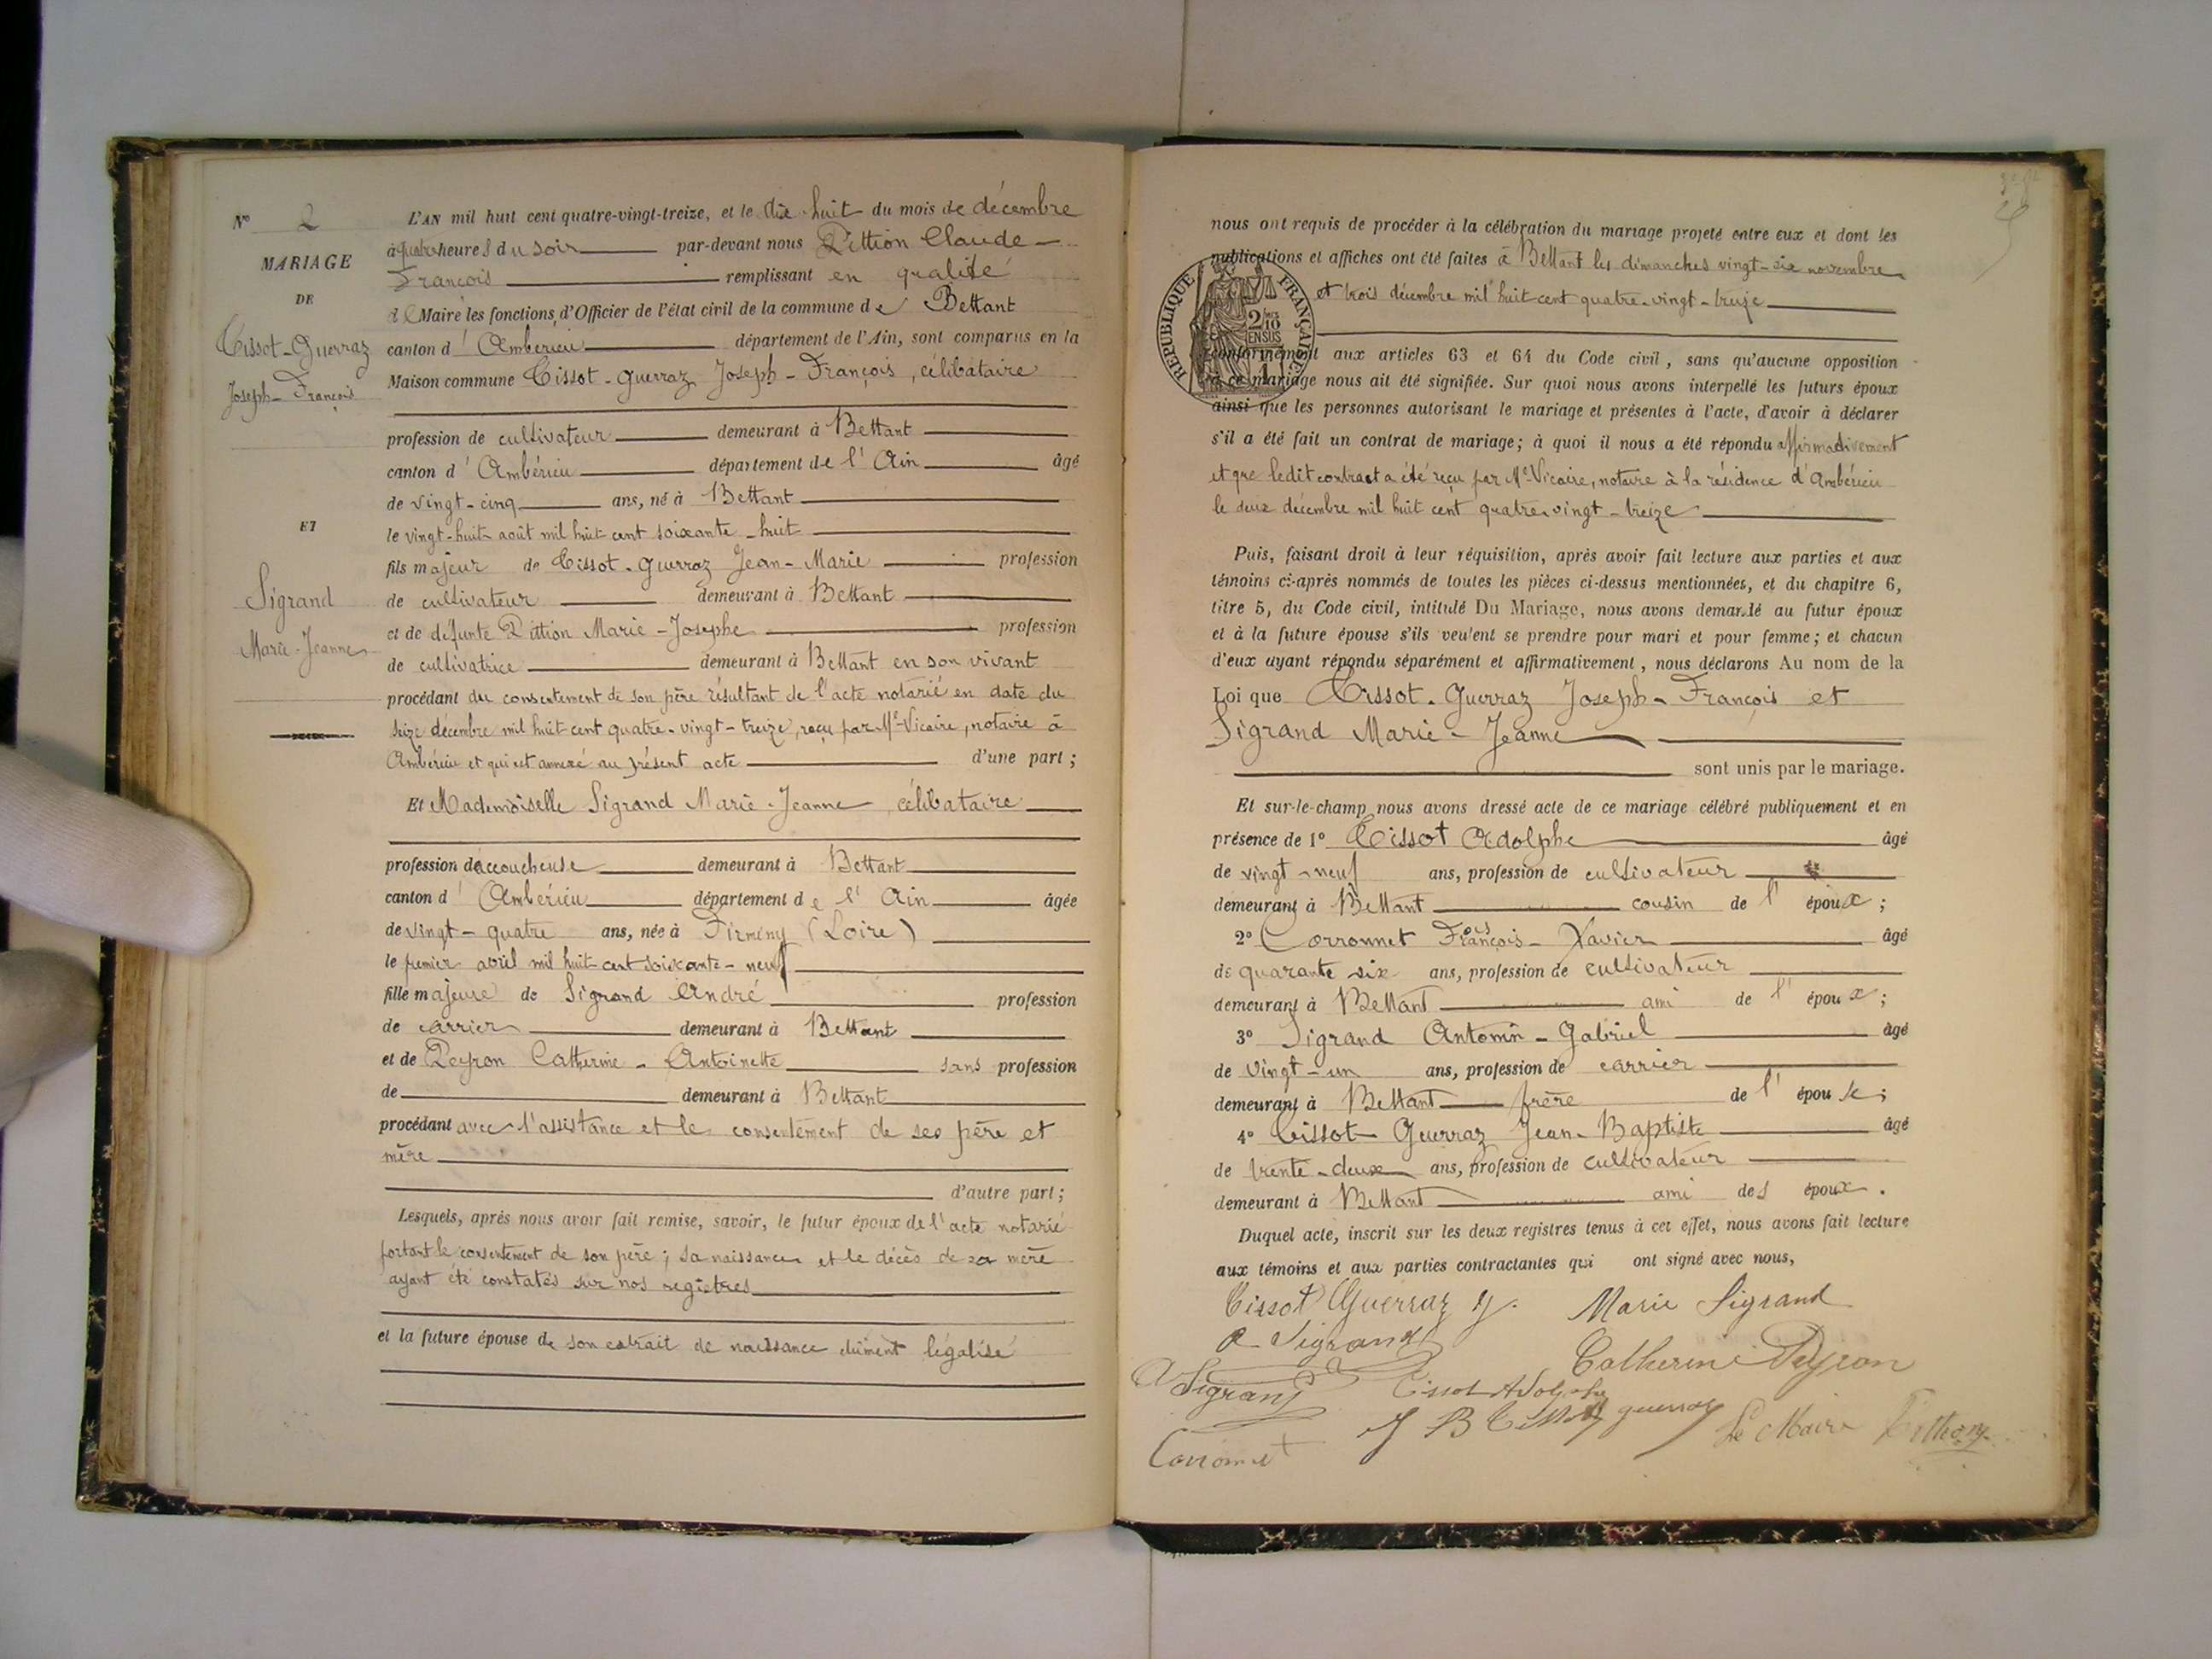 N° 2
MARIAGE
DE
Tissot-Guerraz
Joseph-François
ET
Sigrand
Marie-Jeanne
L'AN mil huit cent quatre-vingt-treize, et le dix-huit du mois de décembre
à quatre heures du soir par-devant nous Pittion Claude-
François remplissant en qualité
de Maire les fonctions d'Officier de l'état civil de la commune de Bettant
canton d'Ambérieu département de l'Ain, sont comparus en la
Maison commune Tissot-Guerraz Joseph-François, célibataire
profession de cultivateur demeurant à Bettant
canton d'Ambérieu département de l'Ain âgé
de vingt-cinq ans, né à Bettant
le vingt-huit août mil huit cent soixante-huit
fils majeur de Tissot-Guerraz Jean-Marie profession
de cultivateur demeurant à Bettant
et de défunte Pittion Marie-Josephe profession
de cultivatrice demeurant à Bettant en son vivant
procédant du consentement de son père résultant de l'acte notarié en date du
seize décembre mil huit cent quatre-vingt-treize, reçu par Me Vicaire, notaire à
Ambérieu et qui est annexé au présent acte d'une part;
Et Mademoiselle Sigrand Marie-Jeanne, célibataire
profession d'accoucheuse demeurant à Bettant
canton d'Ambérieu département de l'Ain âgée
de vingt-quatre ans, née à Firminy (Loire)
le premier avril mil huit cent soixante-neuf
fille majeure de Sigrand André profession
de carrier demeurant à Bettant
et de Peyron Catherine-Antoinette sans profession
de demeurant à Bettant
procédant avec l'assistance et le consentement de ses père et
mère
d'autre part;
Lesquels, après nous avoir fait remise, savoir, le futur époux de l'acte notarié
portant le consentement de son père; sa naissance et le décès de sa mère
ayant été constatés sur nos registres
et la future épouse de son extrait de naissance dûment légalisé
nous ont requis de procéder à la célébration du mariage projeté entre eux et dont les
publications et affiches ont été faites à Bettant les dimanches vingt-six novembre
et trois décembre mil huit cent quatre-vingt-treize
RÉPUBLIQUE FRANÇAISE
2/10 EN SUS
conformément aux articles 63 et 64 du Code civil, sans qu'aucune opposition
à ce mariage nous ait été signifiée. Sur quoi nous avons interpellé les futurs époux
ainsi que les personnes autorisant le mariage et présentes à l'acte, d'avoir à déclarer
s'il a été fait un contrat de mariage; à quoi il nous a été répondu affirmativement
et que ledit contract a été reçu par Me Vicaire, notaire à la résidence d'Ambérieu
le deux décembre mil huit cent quatre-vingt-treize
Puis, faisant droit à leur réquisition, après avoir fait lecture aux parties et aux
témoins ci-après nommés de toutes les pièces ci-dessus mentionnées, et du chapitre 6,
titre 5, du Code civil, intitulé Du Mariage, nous avons demandé au futur époux
et à la future épouse s'ils veulent se prendre pour mari et pour femme; et chacun
d'eux ayant répondu séparément et affirmativement, nous déclarons Au nom de la
Loi que Tissot-Guerraz Joseph-François et
Sigrand Marie-Jeanne
sont unis par le mariage.
Et sur-le-champ nous avons dressé acte de ce mariage célébré publiquement et en
présence de 1° Tissot Adolphe âgé
de vingt-neuf ans, profession de cultivateur
demeurant à Bettant cousin de l'époux;
2° Corronnet François-Xavier âgé
de quarante six ans, profession de cultivateur
demeurant à Bettant ami de l'époux;
3° Sigrand Antonin-Gabriel âgé
de vingt-un ans, profession de carrier
demeurant à Bettant frère de l'épouse;
4° Tissot-Guerraz Jean-Baptiste âgé
de trente-deux ans, profession de cultivateur
demeurant à Bettant ami des époux.
Duquel acte, inscrit sur les deux registres tenus à cet effet, nous avons fait lecture
aux témoins et aux parties contractantes qui ont signé avec nous,
Tissot Guerraz J. Marie Sigrand
A Sigrand Catherine Peyron
A Sigrand Tissot Adolphe
J B Tissot guerraz Le Maire Pittion
Corronnet